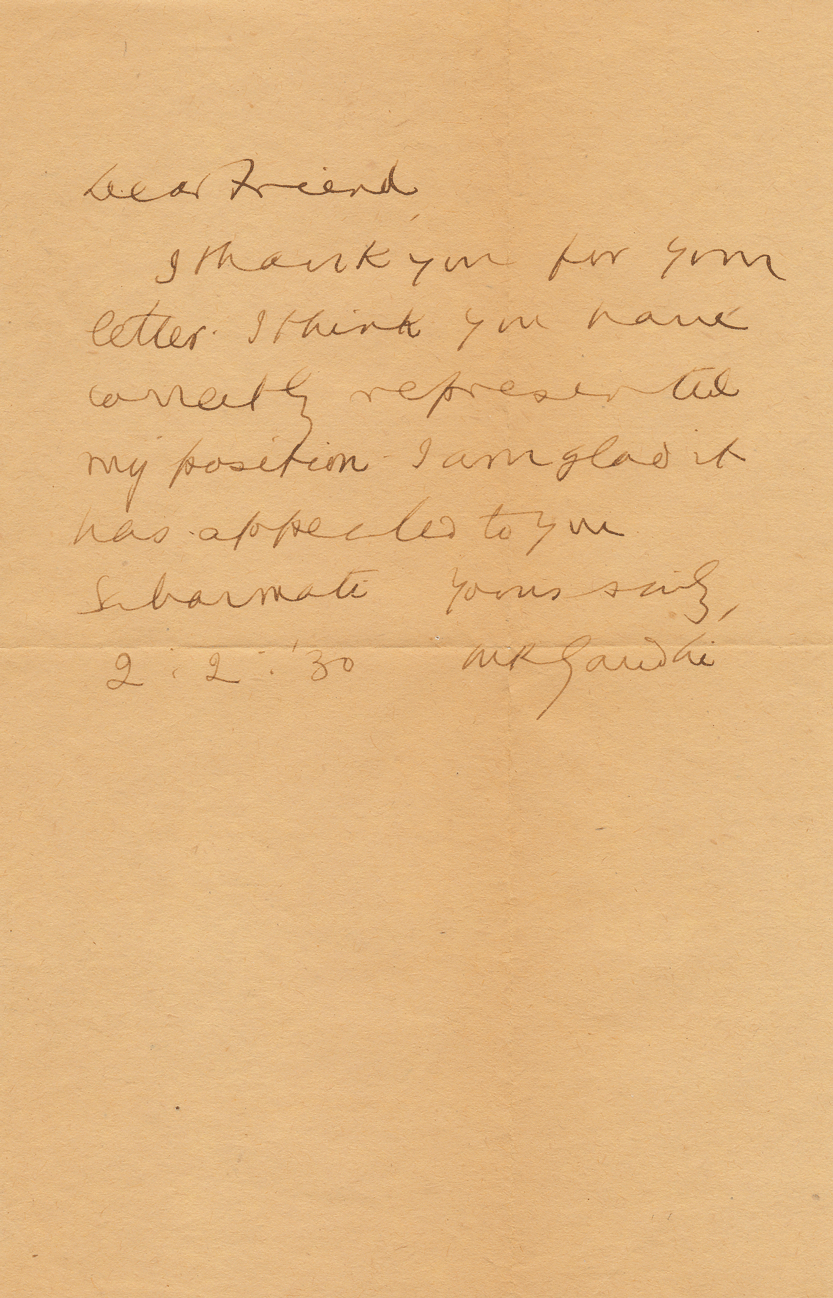 Dear Friend,
I thank you for your
letter. I think you have
correctly represented
my position. I am glad it
has appealed to you
Sabarmati Yours sincly,
2 : 2 : '30 MKGandhi